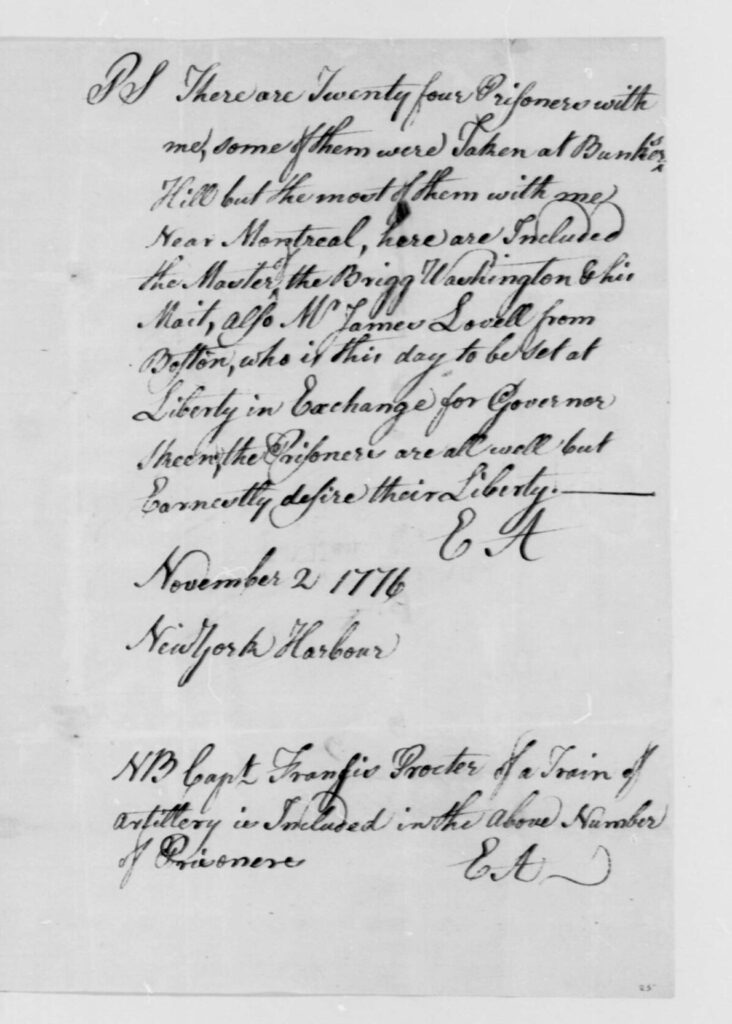 PS There are Twenty four Prisoners with
me, some of them were Taken at Bunkers
Hill but the most of them with me
Near Montreal, here are Included
the Master of the Brigg Washington & his
Mait, also Mr James Lovell from
Boston, who is this day to be set at
Liberty in Exchange for Governor
Skeen, the Prisoners are all well but
Earnestly desire their Liberty.
E A
November 2 1776
New York Harbour
NB Capt Francis Procter of a Train of
artillery is Included in the above Number
of Prisoners
E A
25